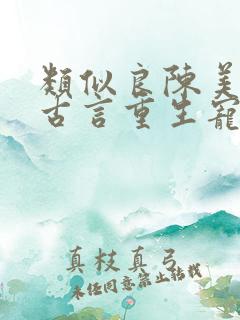 類似良陳美
古言重生寵
真枝真弓
未经同意禁止转载